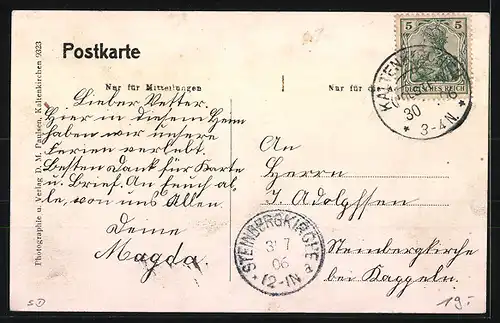 Photographie u. Verlag D. M. Paulsen, Kaltenkirchen 9323
Postkarte
Nur für Mitteilungen
Nur für die
5 5
DEUTSCHES REICH
KALTEN
30
* 3-4 N. *
Lieber Vetter.
Hier in diesem Heim
haben wir unsere
Ferien verlebt.
Besten Dank für Karte
u. Brief. An Euch al-
le, von uns Allen.
Deine
Magda.
STEINBERGKIRCHE
31 7
06
12-1N
An
Herrn
J. Adolphsen
Steinbergkirche
bei Kappeln.
19.-